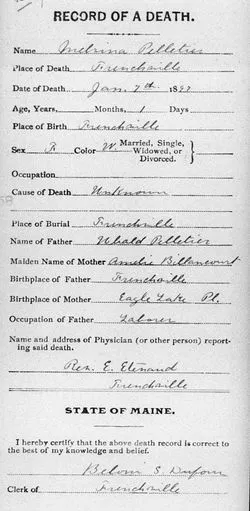 RECORD OF A DEATH.
Name Melvina Pelletier
Place of Death Frenchville
Date of Death Jan. 7th 1897
Age, Years, Months, 1 Days
Place of Birth Frenchville
Sex F. Color W. Married, Single, Widowed, or Divorced.
Occupation
Cause of Death Unknown
Place of Burial Frenchville
Name of Father Ubald Pelletier
Maiden Name of Mother Amelie
Birthplace of Father Frenchville
Birthplace of Mother Eagle Lake Pl.
Occupation of Father Laborer
Name and address of Physician (or other person) report-
ing said death.
Rev. E.
Frenchville
STATE OF MAINE.
I hereby certify that the above death record is correct to
the best of my knowledge and belief.
S. Dufour
Clerk of Frenchville